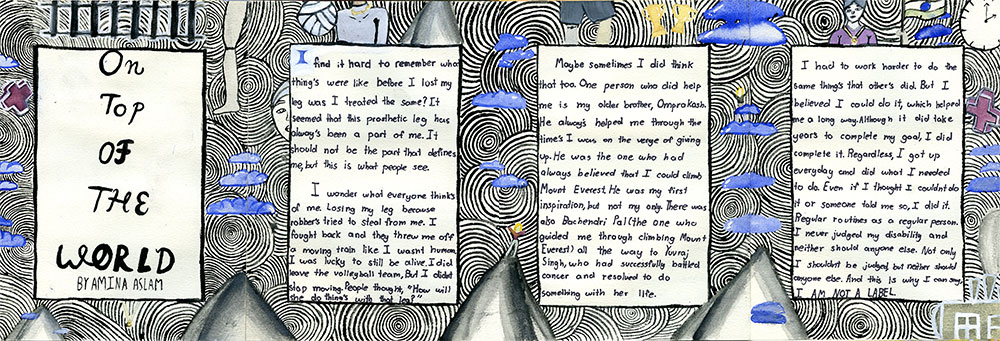 On
Top
OF
THE
WORLD
BY AMINA ASLAM
I find it hard to remember what
thing's were like before I lost my
leg was I treated the same? It
seemed that this prosthetic leg has
alway's been a part of me. It
should not be the part that defines
me, but this is what people see.
I wonder what everyone thinks
of me. Losing my leg because
robber's tried to steal from me. I
fought back and they threw me off
a moving train like I wasnt human.
I was lucky to still be alive. I did
leave the volleyball team, But I didnt
stop moving. People thought, "How will
she do thing's with that leg?"
Maybe sometimes I did think
that too. One person who did help
me is my older brother, Omprakash.
He alway's helped me through the
time's I was on the verge of giving
up. He was the one who had
always believed that I could climb
Mount Everest. He was my first
inspiration, but not my only. There was
also Bachendri Pal (the one who
guided me through climbing Mount
Everest) all the way to Iuvraj
Singh, who had successfully battled
cancer and resolved to do
something with her life.
I had to work harder to do the
same thing's that other's did. But I
believed I could do it, which helped
me a long way. Although it did take
years to complete my goal, I did
complete it. Regardless, I got up
everyday and did what I needed
to do. Even if I thought I couldnt do
it or someone told me so, I did it.
Regular routines as a regular person.
I never judged my disability and
neither should anyone else. Not only
I shouldn't be judged, but neither should
anyone else. And this is why I can say,
I AM NOT A LABEL